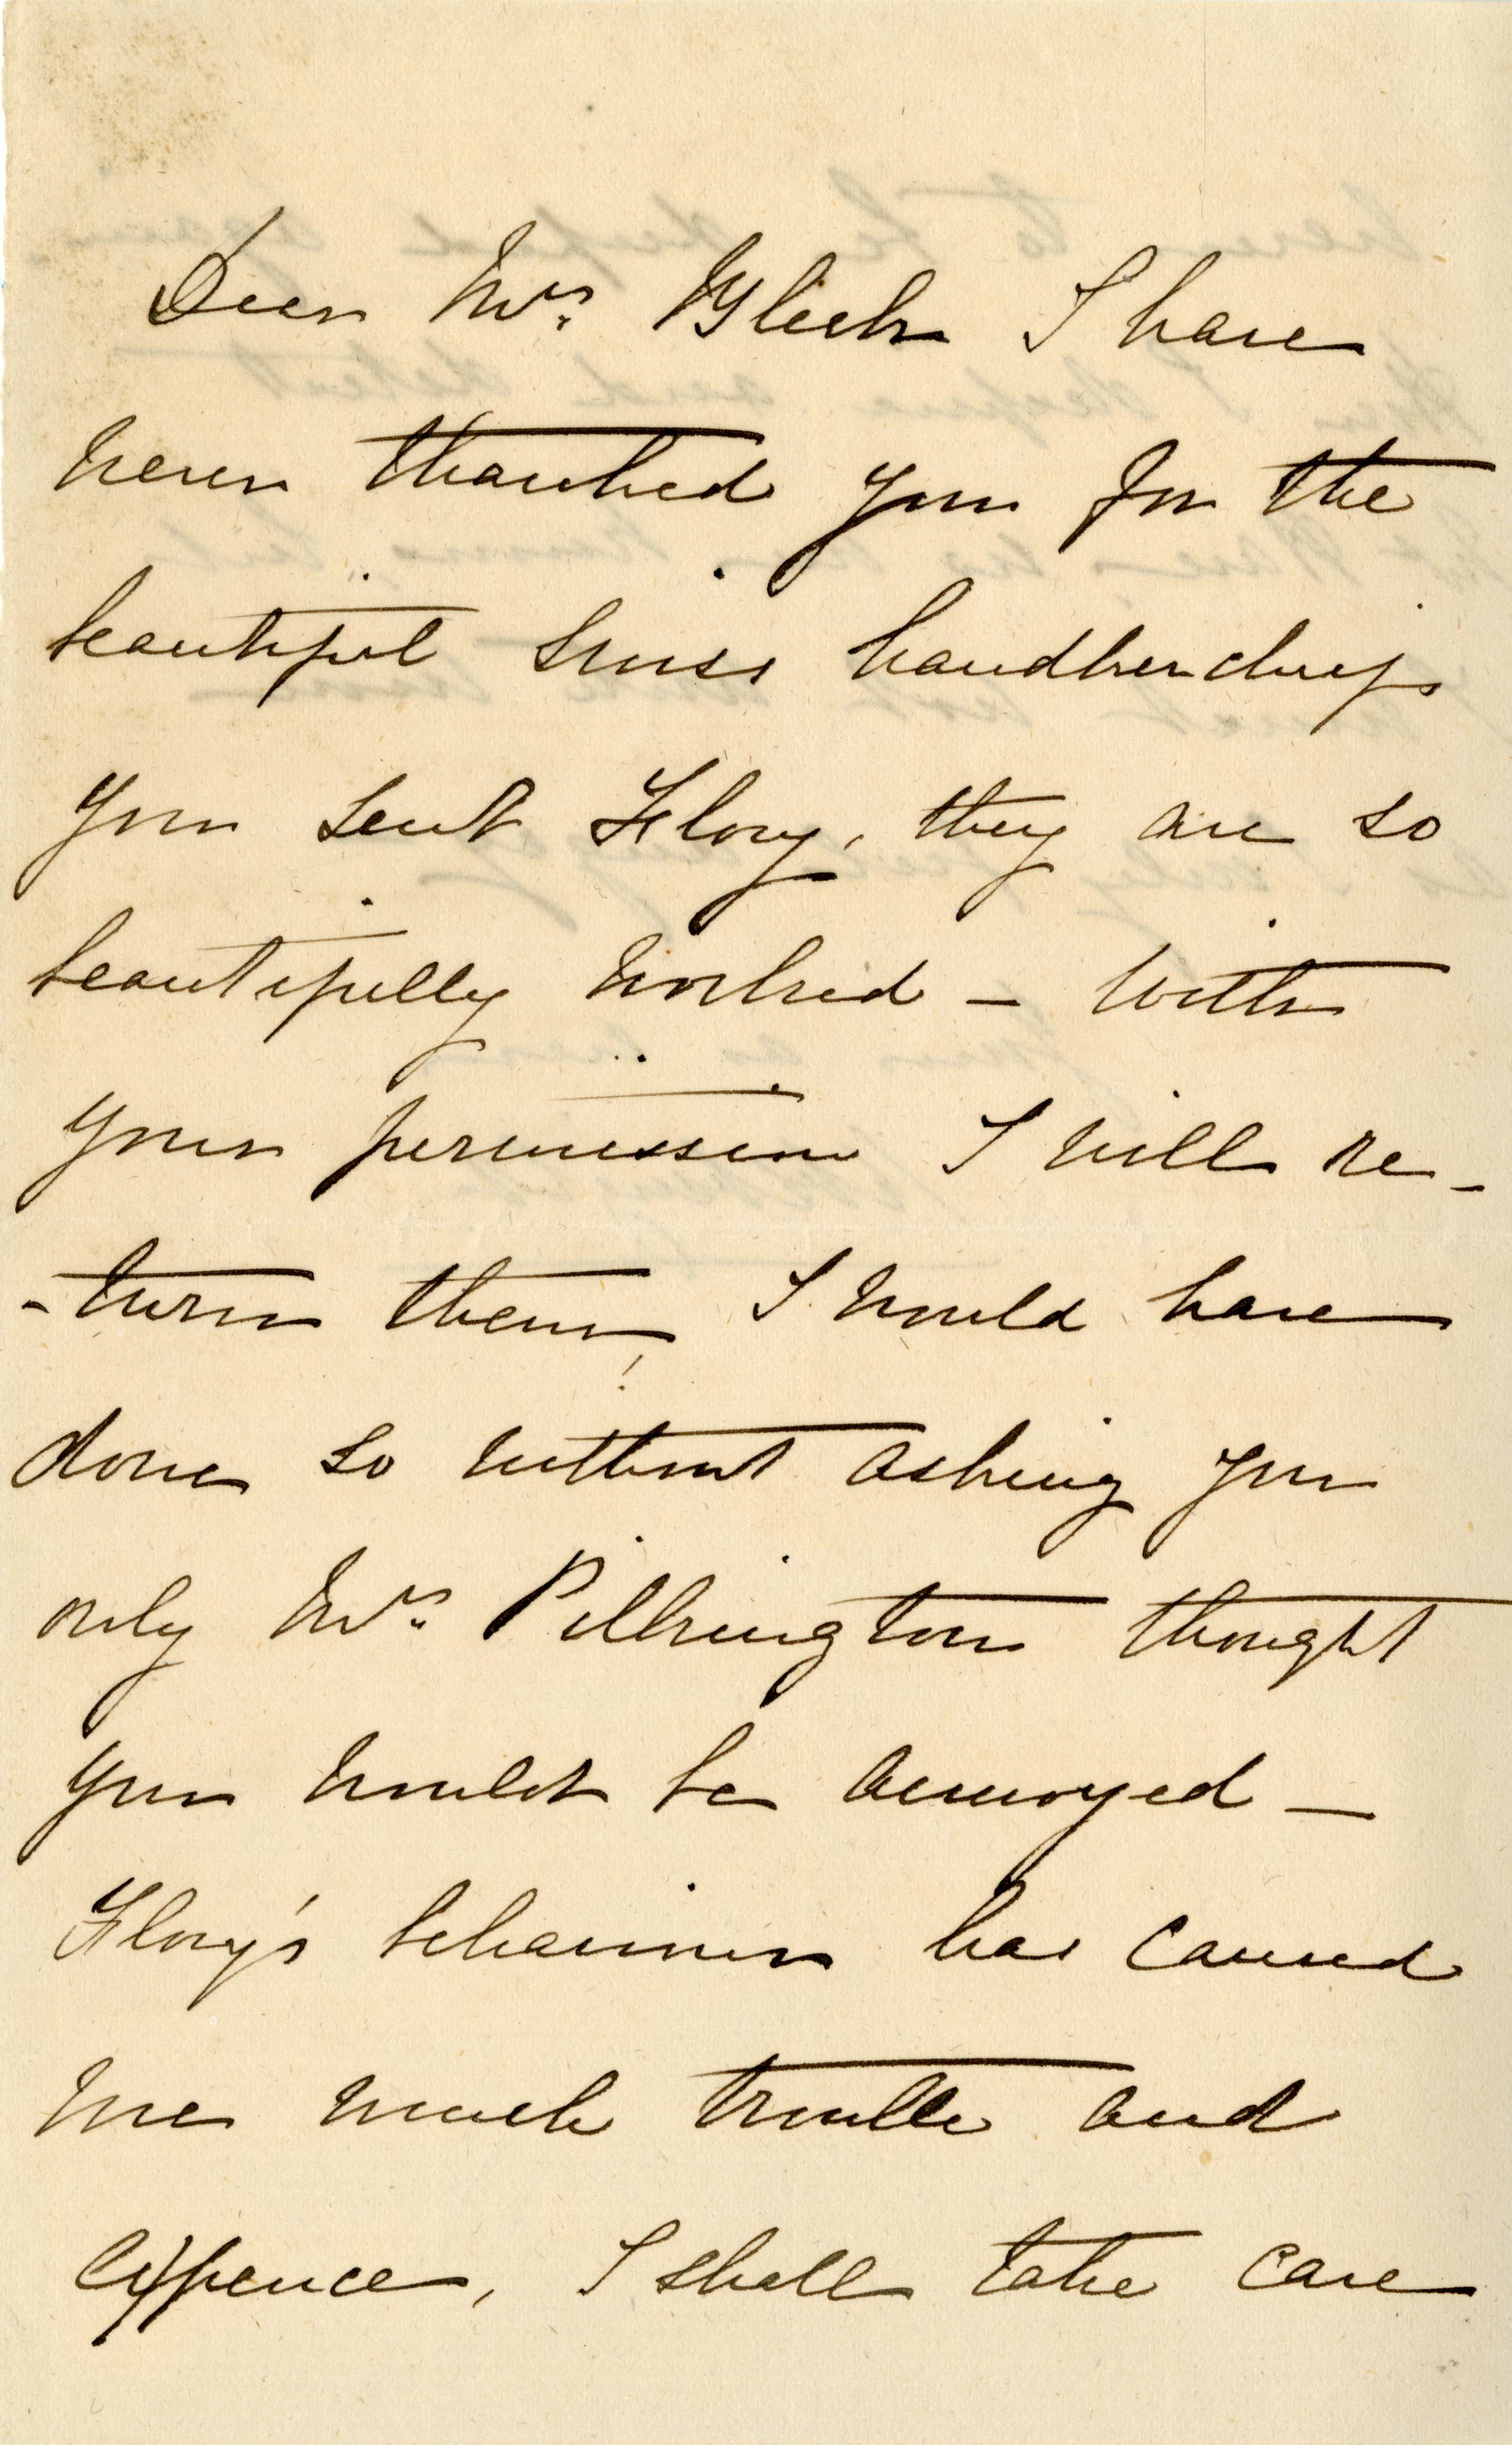 Dear Mrs. Gleek I have
never thanked you for the
beautiful swiss handkerchiefs
you sent Flory, they are so
beautifully worked — With
your permission I will re-
-turn them! I would have
done so without asking you
only Mrs. Pilkington thought
you would be annoyed —
Flory's behaviour has caused
me much trouble and
expence, I shall take care